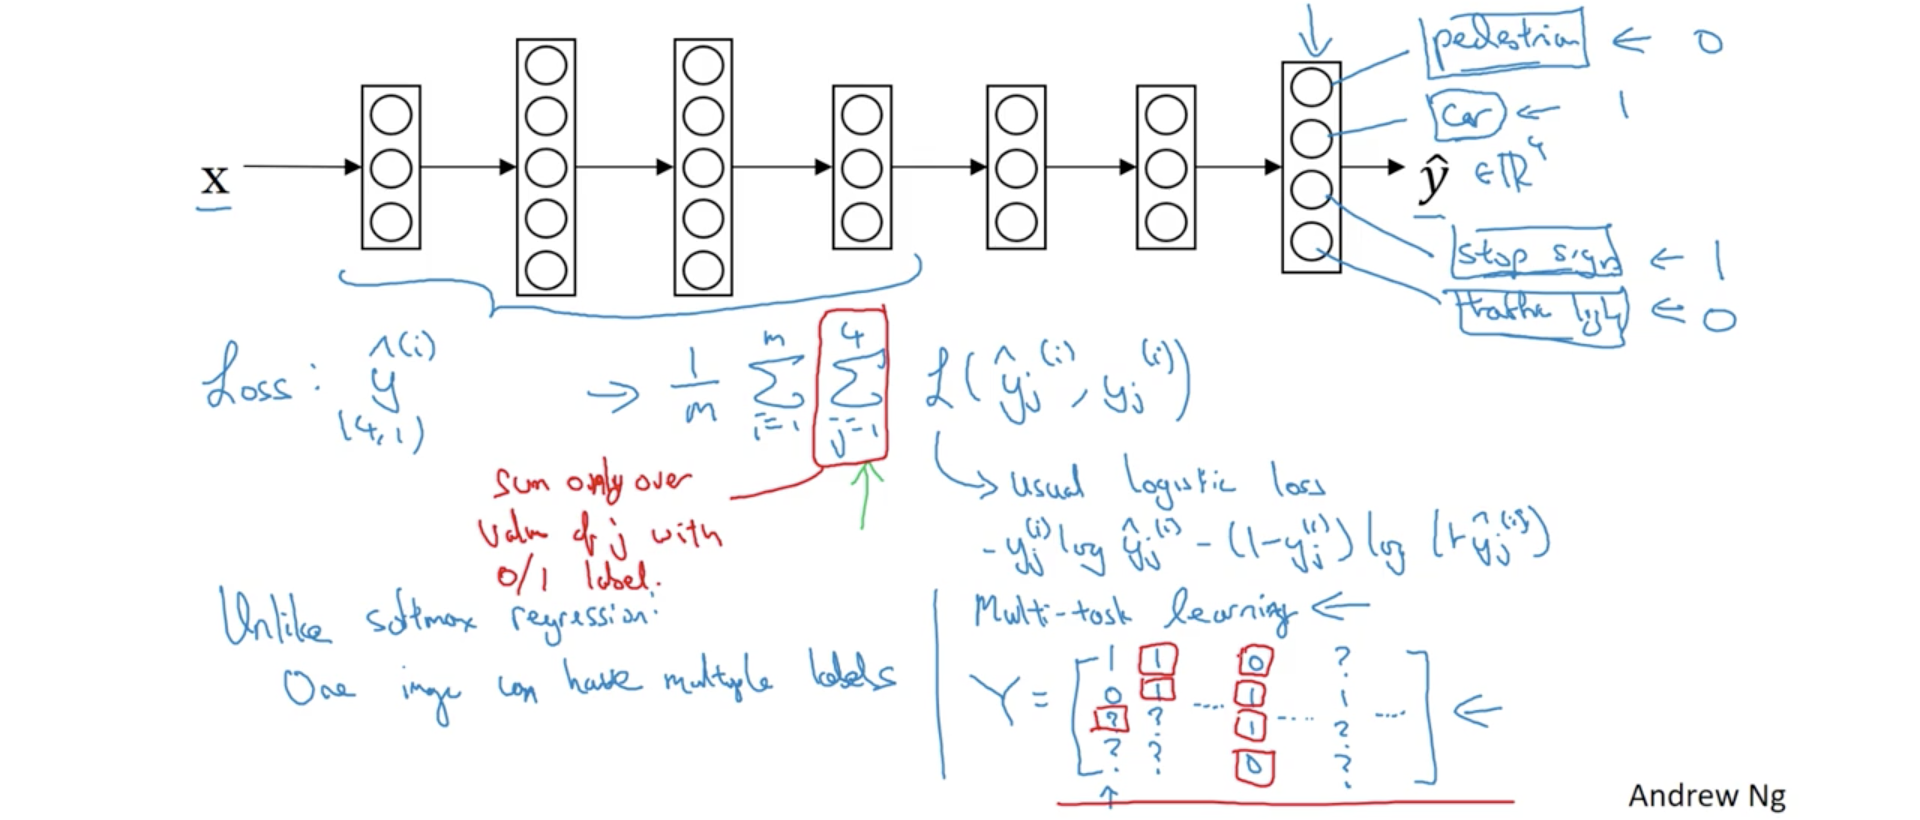 pedestrian ← 0
car ← 1
x
ŷ ∈ ℝ⁴
stop sign ← 1
traffic light ← 0
Loss: ŷ^(i) (4,1) → 1/m Σ_{i=1}^{m} Σ_{j=1}^{4} ℒ(ŷ_j^(i), y_j^(i))
Sum only over
value of j with
0/1 label.
→ usual logistic loss
- y_j^(i) log ŷ_j^(i) - (1-y_j^(i)) log (1-ŷ_j^(i))
Unlike softmax regression:
One image can have multiple labels
Multi-task learning ←
1 1 0 ?
0 1 1 1
Y = [ ? ? ..... 1 .... ? .... ] ←
? ? 0 ?
Andrew Ng